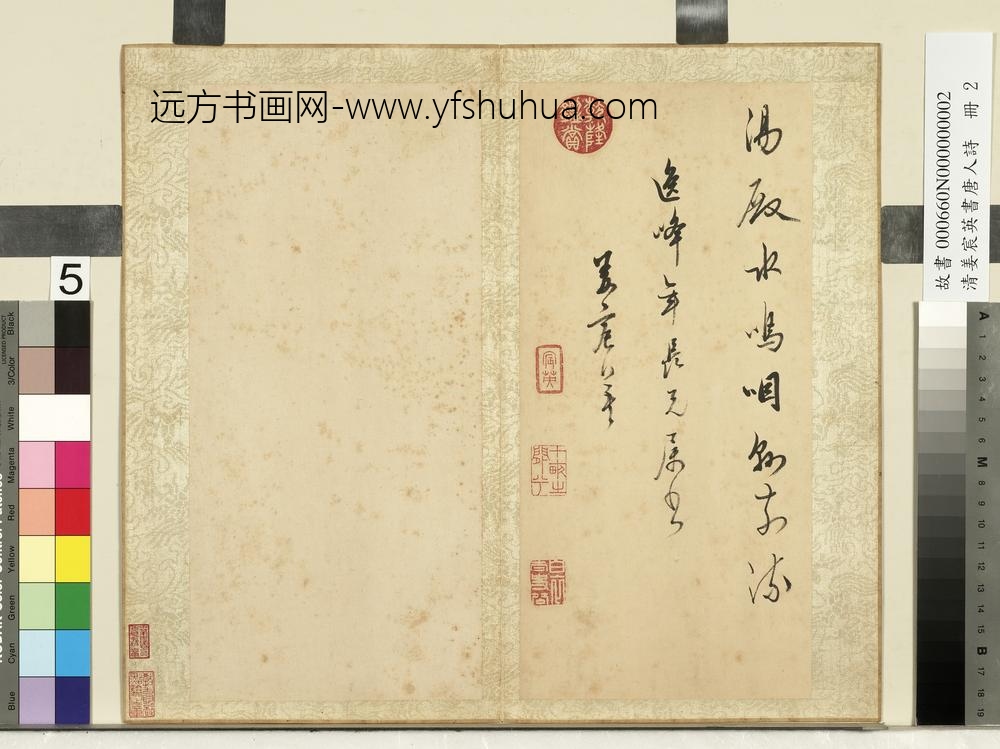 远方书画网-www.yfshuhua.com
湯殿水嗚咽縣前流
逸峰年長兄屬書
姜宸英
宸英
故書 000660N000000002
清姜宸英書唐人詩 冊 2
5
Black
3/Color
White
Magenta
Red
Yellow
Green
Cyan
Blue
A 1 2 3 4 5 6 M 8 9 10 11 12 13 14 15 B 17 18 19